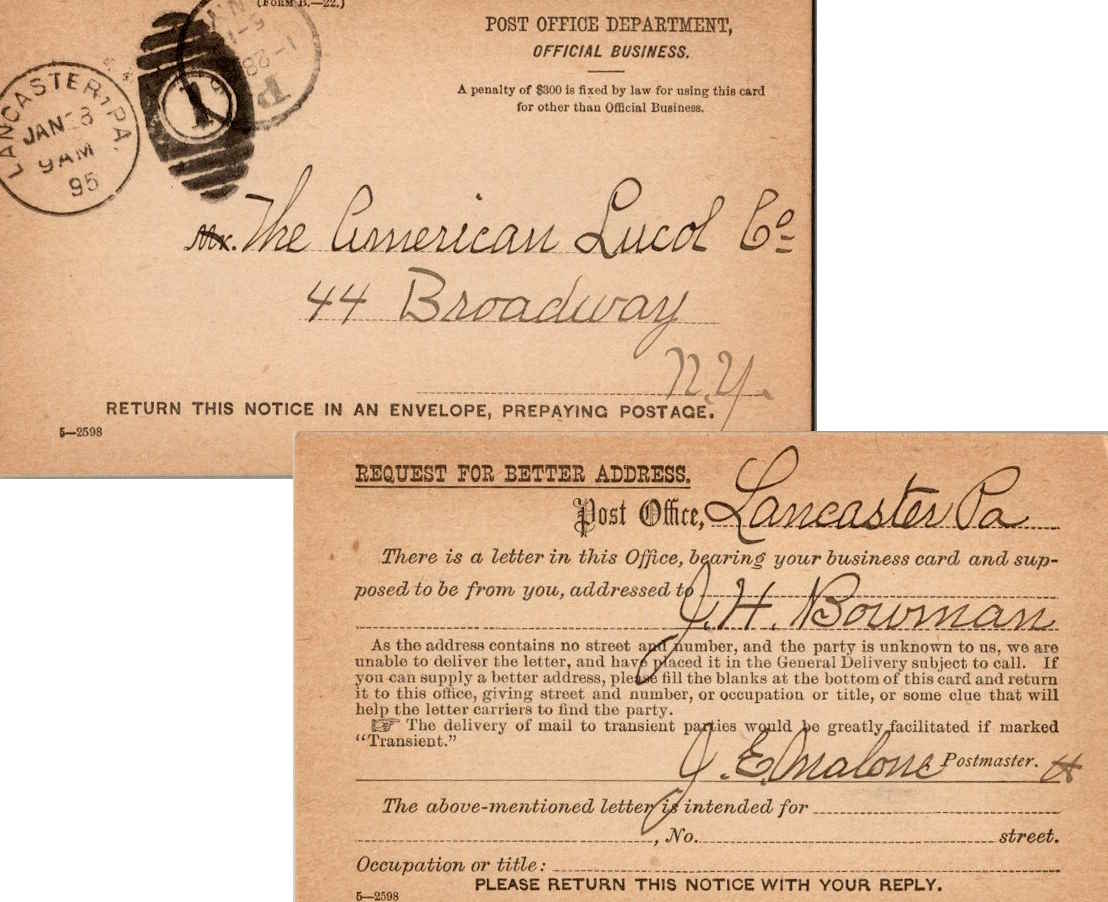 (FORM B.—22.)
POST OFFICE DEPARTMENT,
OFFICIAL BUSINESS.
A penalty of $300 is fixed by law for using this card
for other than Official Business.
LANCASTER, PA,
JAN 28
9 AM
95
1
P
Mr. The American Lucol Co
44 Broadway
N.Y.
RETURN THIS NOTICE IN AN ENVELOPE, PREPAYING POSTAGE.
5—2598
REQUEST FOR BETTER ADDRESS.
Post Office, Lancaster Pa
There is a letter in this Office, bearing your business card and sup-
posed to be from you, addressed to
J. H. Bowman
As the address contains no street and number, and the party is unknown to us, we are
unable to deliver the letter, and have placed it in the General Delivery subject to call. If
you can supply a better address, please fill the blanks at the bottom of this card and return
it to this office, giving street and number, or occupation or title, or some clue that will
help the letter carriers to find the party.
☞ The delivery of mail to transient parties would be greatly facilitated if marked
“Transient.”
J. E. Malone Postmaster. H
The above-mentioned letter is intended for
, No. street.
Occupation or title:
PLEASE RETURN THIS NOTICE WITH YOUR REPLY.
5—2598